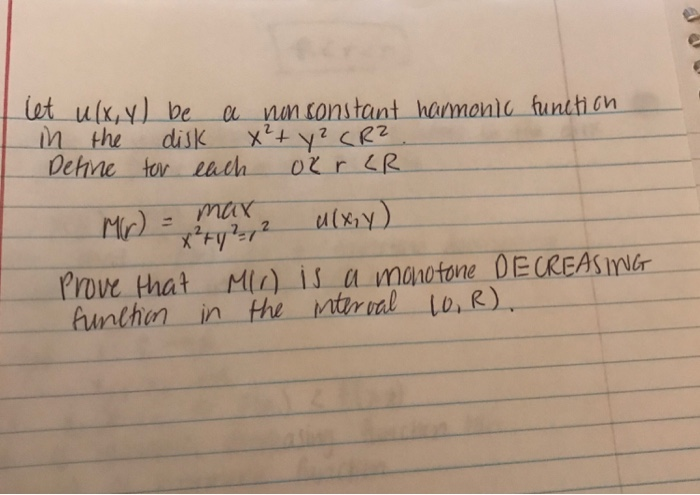 Let u(x,y) be a nonconstant harmonic function
in the disk x² + y² < R².
Define for each 0 < r < R
M(r) = max u(x,y)
x²+y²=r²
Prove that M(r) is a monotone DECREASING
function in the interval (0, R).